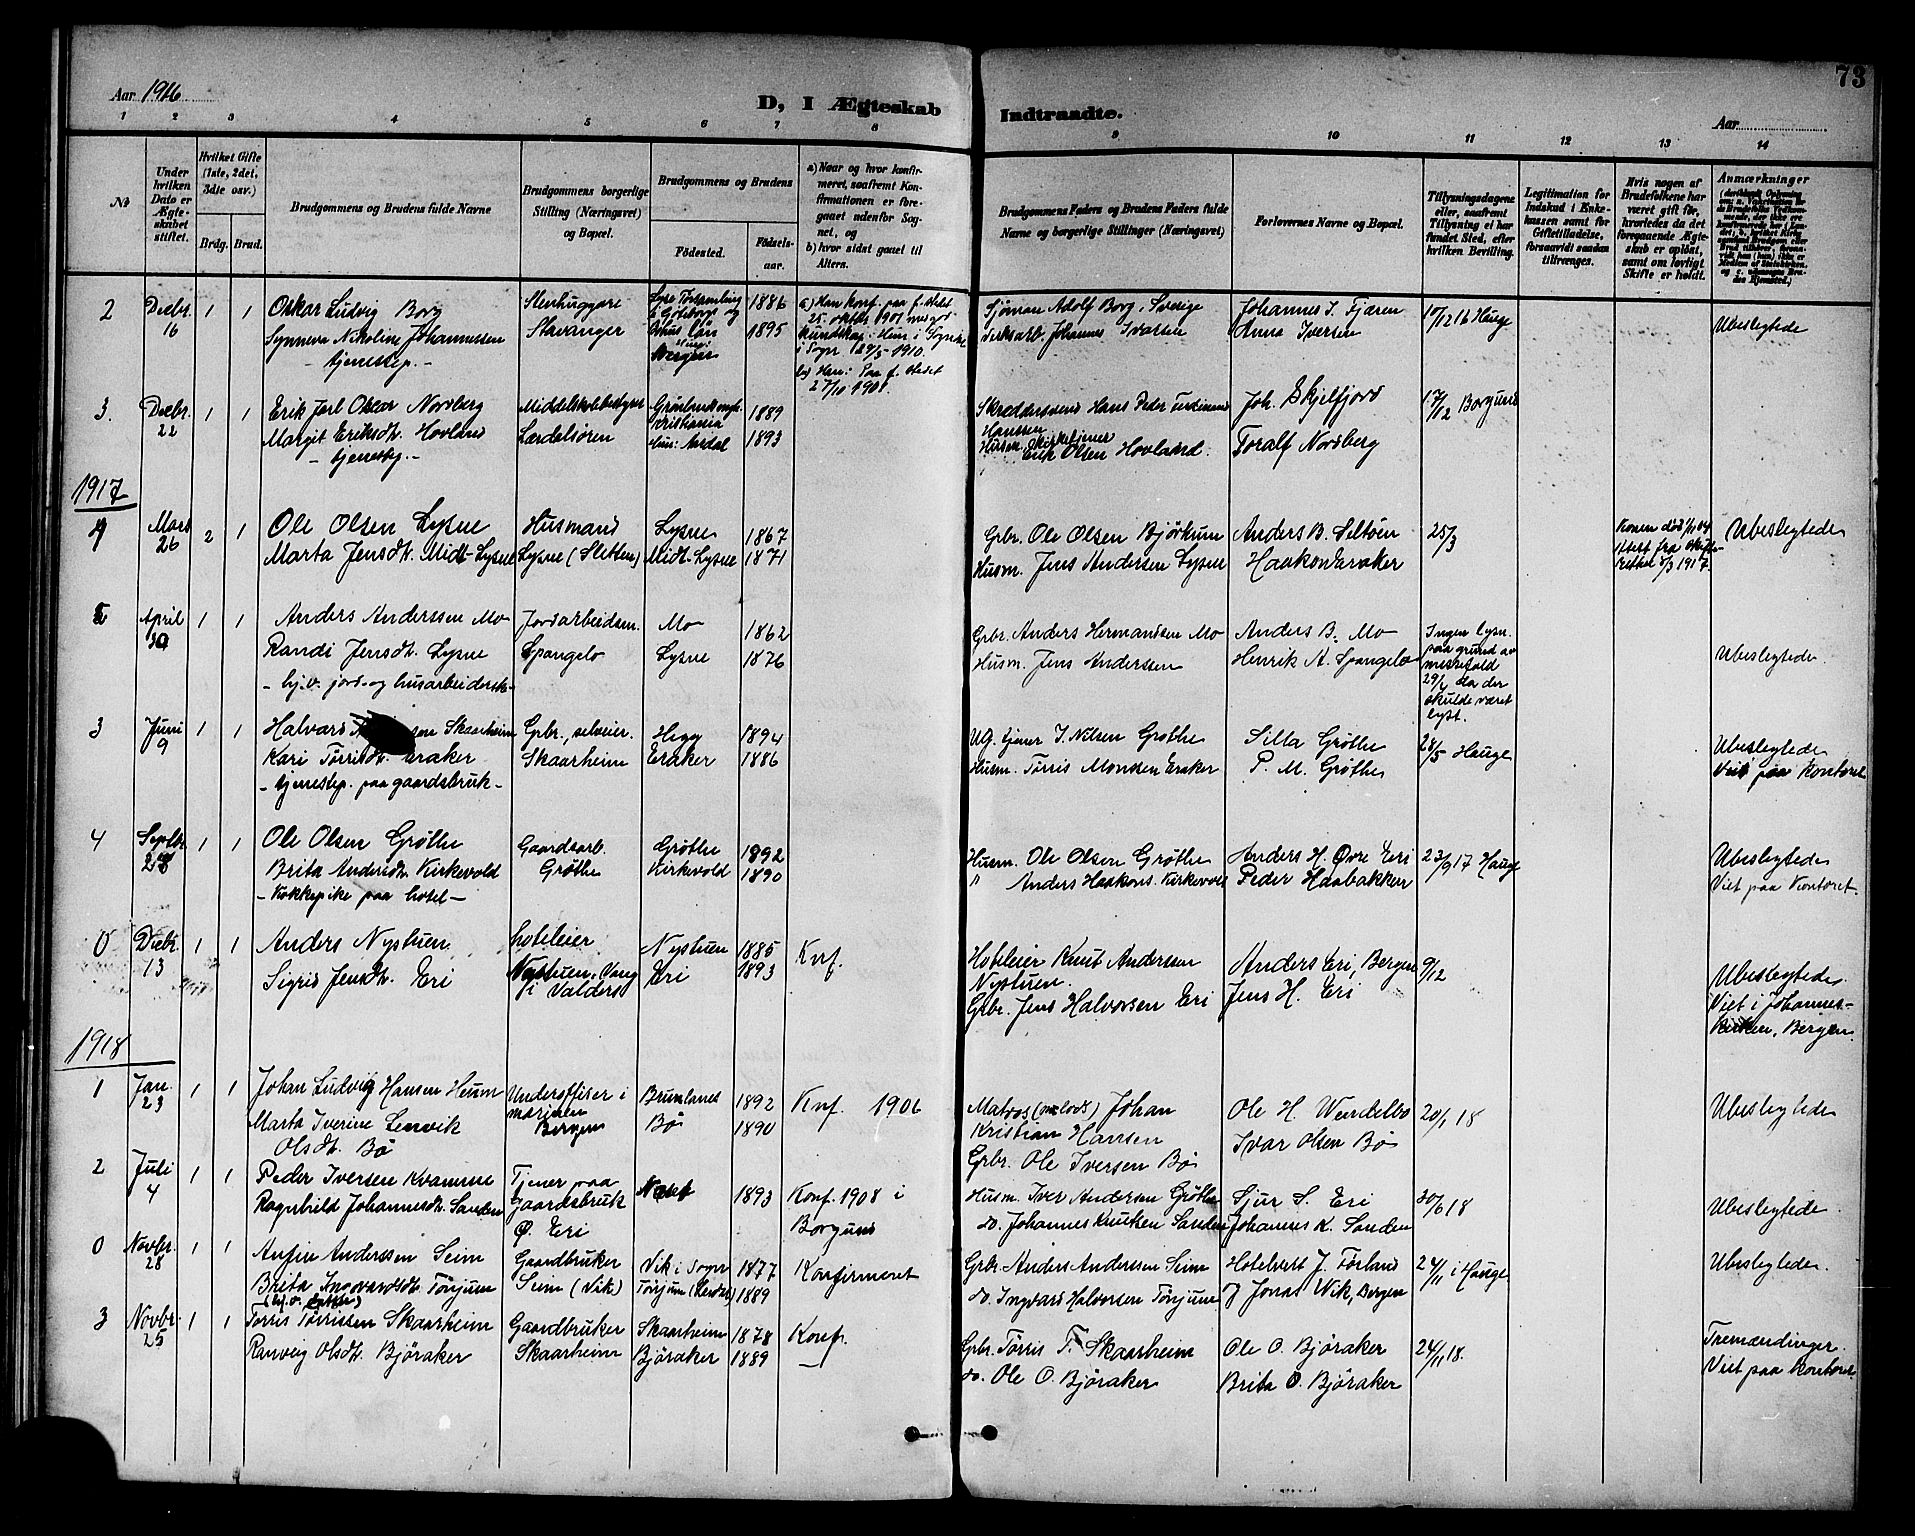 Aar 1916
D, I Ægteskab Indtraadte.
Aar
73
1 2 3 4 5 6 7 8 9 10 11 12 13 14
No
Under hvilken Dato er Ægteskabet stiftet.
Hvilket Gifte (1ste, 2det, 3die osv.)
Brdg. Brud.
Brudgommens og Brudens fulde Navne
Brudgommens borgerlige Stilling (Næringsvei) og Bopæl.
Brudgommens og Brudens
Fødested.
Fødselsaar.
a) Naar og hvor konfirmeret, saafremt Konfirmationen er foregaaet udenfor Sognet, og
b) hvor sidst gaaet til Alters.
Brudgommens Faders og Brudens Faders fulde Navne og borgerlige Stillinger (Næringsvei)
Forlovernes Navne og Bopæl.
Tillysningsdagene eller, saafremt Tillysning ei har fundet Sted, efter hvilken Bevilling.
Legitimation for Indskud i Enkekassen samt for Giftetilladelse, forsaavidt saadan tiltrænges.
Hvis nogen af Brudefolkene har været gift før, hvorledes da det foregaaende Ægteskab er opløst, samt om lovligt Skifte er holdt.
Anmærkninger
2 Decbr. 16 1 1 Oskar Ludvig Borg Stenhuggare 1886 Sjöman Adolf Borg, Sverige Johannes I. Fjæren 10/12 16 Hauge Ubeslegtede
Synneva Nikoline Johannessen Stavanger Bergen 1895 Johannes Ivarsen Anna Iversen
- tjenestep. -
a) Han konf. paa f. stedet 25. oktbr 1901
kundskap. Hun i Sogndal i Sogn 29/5 1910.
b) Han: Paa f. stedet 27/10 1901
3. Decbr. 22 1 1 Erik Jarl Oskar Norberg Middelskolebestyrer Kristiania 1889 Hans Peder Joh. Skjelfjord 17/12 Borgund
Margit Eriksdt. Hovland Lærdalsøren Hun: Aardal 1893 Hanssen
- tjenestep. - Erik Olsen Hovland. Toralf Norberg
1917
4 Mars 26 2 1 Ole Olsen Lysne Husmand Lysne 1867 Grbr. Ole Olsen Bjørkum Anders B. Seltøen 25/3 Konen død 1/1 04 Ubeslegtede
Marta Jensdt. Midt-Lysne Lysne (Sletten) Midt-Lysne 1871 Husm. Jens Andersen Lysne Haakon Eraker Attest fra skifteretten 5/3 1917.
5 April 30 1 1 Anders Anderssen Mo Jordarbeidsm. Mo 1862 Grbr. Anders Hermandsen Mo Anders B. Mo Ingen lysn.
Randi Jensdt. Lysne Spangelo Lysne 1876 Husm. Jens Anderssen Henrik A. Spangelo paa grund av Ubeslegtede.
- hj.v. jord- og husarbeidersk- messefald 29/4 da der skulde været lyst.
3 Juni 9 1 1 Halvard Skaarheim Grbr., selveier. Hegg 1894 I. Nilsen Grøthe Silla Grøthe 28/5 Hauge Ubeslegtede
Kari Tørrisdt. Eraker Skaarheim Eraker 1886 Husm. Tørris Monsen Eraker P. M. Grøthe Viet paa Kontoret
- tjenestep. paa gaardsbruk -
4 Septbr. 28 1 1 Ole Olsen Grøthe Gaardsarb. Grøthe 1892 Husm. Ole Olsen Grøthe Anders H. Øvre Eri 23/9 17 Hauge Ubeslegtede
Brita Andersdt. Kirkevold Grøthe Kirkevold 1890 " Anders Haakons. Kirkevold Peder Haabakken Viet paa Kontoret.
- Kokkepike paa hotel -
0 Decbr. 13 1 1 Anders Nystuen hoteleier Nystuen 1885 Knf. Hoteleier Knut Anderssen Anders Eri, Bergen 9/12
Sigrid Jensdt. Eri Nystuen, Vang i Valders Eri 1893 Nystuen. Jens H. Eri Ubeslegtede
Grbr. Jens Halvorsen Eri Viet i Johanneskirken, Bergen.
1918
1 Jan. 23 1 1 Johan Ludvig Hansen Heum Underoffiser i Brunlanes 1892 Knf. 1906 Matros Johan Ole H. Wendelbo 20/1 18 Ubeslegtede
Marta Iverine Lenvik marinen Bø 1890 Kristian Hansen Ivar Olsen Bø
Olsdt. Bø Bergen Grbr. Ole Iversen Bø
2 Juli 4 1 1 Peder Iversen Kvamme Tjener paa 1893 Konf. 1908 i Husm. Iver Andersen Grøthe Sjur S. Eri 30/6 18 Ubeslegtede.
Ragnhild Johannesdt. Sanden Gaardsbruk Borgund do. Johannes Knutsen Sanden Johannes K. Sanden
Ø. Eri
0 Novbr. 28 1 1 Anfin Anderssen Seim Gaardbruker Vik i Sogn 1877 Konfirmeret Grbr. Anders Anderssen Seim Hotelvert J. Førland 24/11 i Hauge Ubeslegtede.
Brita Ingvardsdt. Tønjum Seim (Vik) Tønjum (Lærdal) 1889 do. Ingvard Halvorsen Tønjum J Jonas Wik, Bergen
3 Novbr. 25 1 1 Tørris Tørrissen Skaarheim Gaardbruker Skaarheim 1878 Konf. Grbr. Tørris T. Skaarheim Ole O. Bjøraker 24/11 18. Tremændinger.
Ranveig Olsdt. Bjøraker Skaarheim Bjøraker 1889 — do. Ole O. Bjøraker Brita O. Bjøraker Viet paa Kontoret.